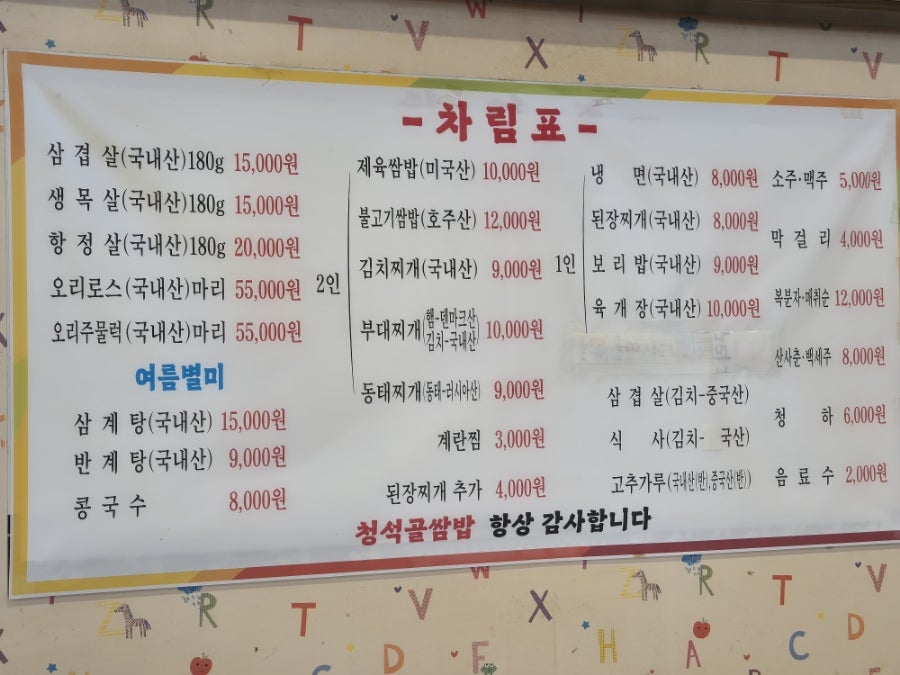 - 차림표 -
삼겹살(국내산)180g 15,000원
생목살(국내산)180g 15,000원
항정살(국내산)180g 20,000원
오리로스(국내산)마리 55,000원
오리주물럭(국내산)마리 55,000원
여름별미
삼계탕(국내산) 15,000원
반계탕(국내산) 9,000원
콩국수 8,000원
2인
제육쌈밥(미국산) 10,000원
불고기쌈밥(호주산) 12,000원
김치찌개(국내산) 9,000원
부대찌개(햄-덴마크산 김치-국내산) 10,000원
동태찌개(동태-러시아산) 9,000원
계란찜 3,000원
된장찌개 추가 4,000원
1인
냉면(국내산) 8,000원
된장찌개(국내산) 8,000원
보리밥(국내산) 9,000원
육개장(국내산) 10,000원
삼겹살(김치-중국산)
식사(김치- 국산)
고추가루(국내산(반),중국산(반))
소주·맥주 5,000원
막걸리 4,000원
복분자·매취순 12,000원
산사춘·백세주 8,000원
청하 6,000원
음료수 2,000원
청석골쌈밥 항상 감사합니다
Z R T V X
T V W X Z R T V
Z R T V X Z R T V
C D E H A B C D